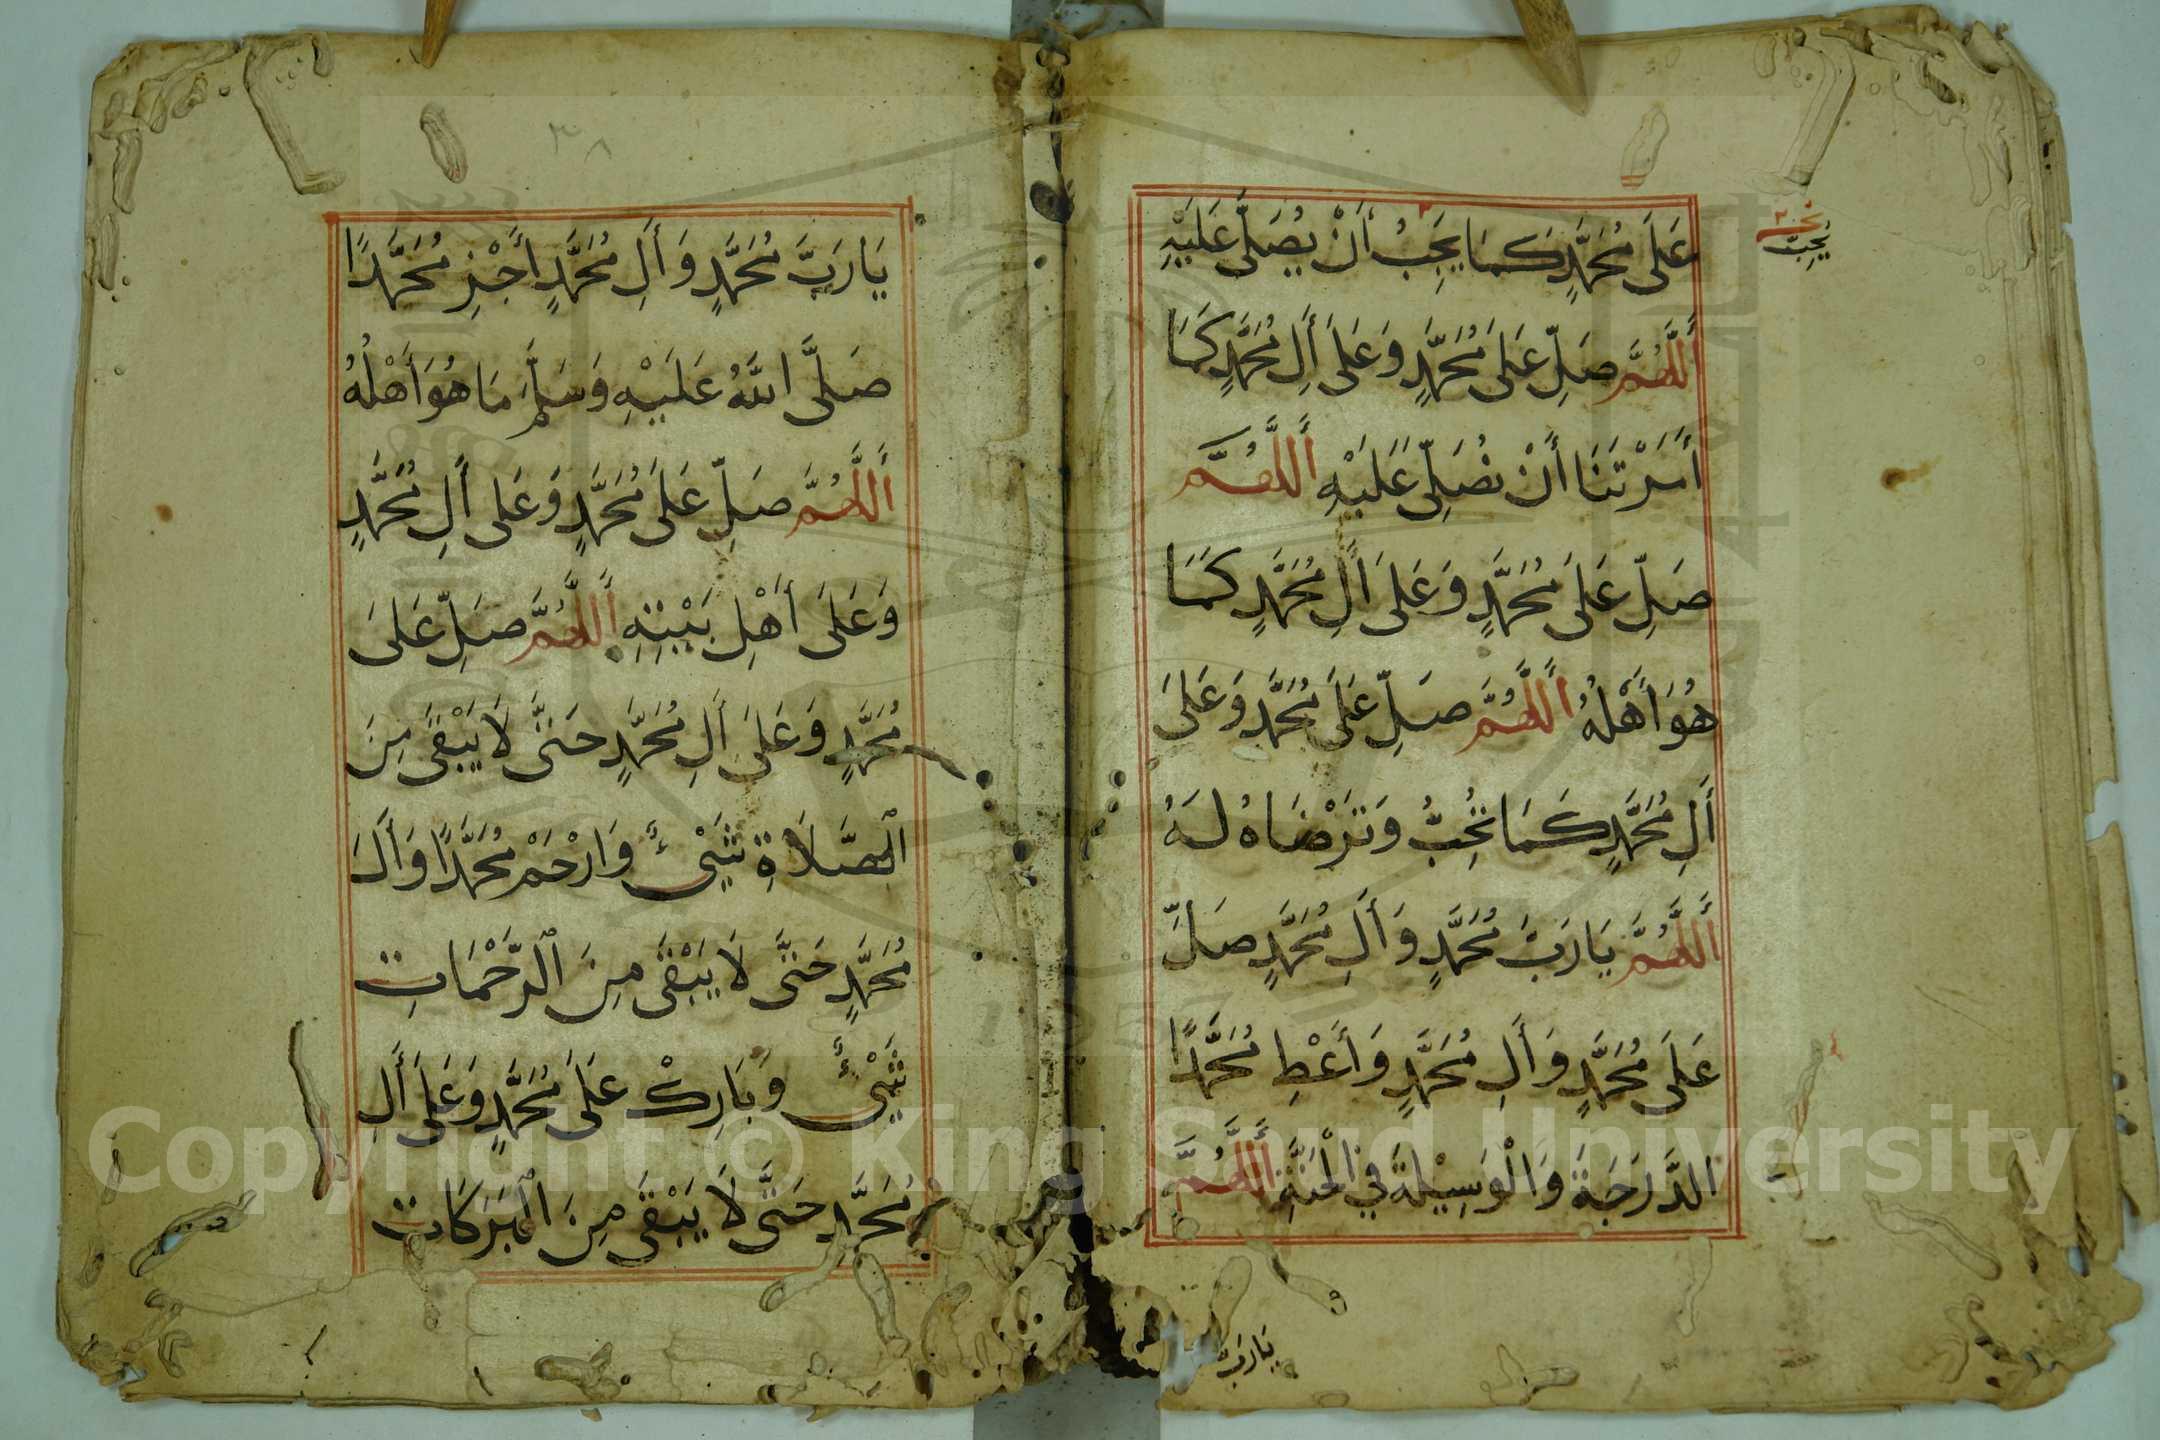 عَلَى مُحَمَّدٍ كَمَا يَجِبُ أَنْ يُصَلَّى عَلَيْهِ
أَللَّهُمَّ صَلِّ عَلَى مُحَمَّدٍ وَعَلَى أَلِ مُحَمَّدٍ كَمَا
أَمَرْتَنَا أَنْ نُصَلِّىَ عَلَيْهِ أَللَّهُمَّ
صَلِّ عَلَى مُحَمَّدٍ وَعَلَى أَلِ مُحَمَّدٍ كَمَا
هُوَ أَهْلُهُ أَللَّهُمَّ صَلِّ عَلَى مُحَمَّدٍ وَعَلَى
أَلِ مُحَمَّدٍ كَمَا تُحِبُّ وَتَرْضَاهُ لَهُ
أَللَّهُمَّ يَارَبَّ مُحَمَّدٍ وَأَلِ مُحَمَّدٍ صَلِّ
عَلَى مُحَمَّدٍ وَأَلِ مُحَمَّدٍ وَأَعْطِ مُحَمَّدًا
الدَّرَجَةَ وَالْوَسِيْلَةَ فِي الْجَنَّةِ أَللَّهُمَّ
يَارَبَّ
يَارَبَّ مُحَمَّدٍ وَأَلِ مُحَمَّدٍ أَجْزِ مُحَمَّدًا
صَلَّى اللَّهُ عَلَيْهِ وَسَلَّمَ مَا هُوَ أَهْلُهُ
أَللَّهُمَّ صَلِّ عَلَى مُحَمَّدٍ وَعَلَى أَلِ مُحَمَّدٍ
وَعَلَى أَهْلِ بَيْتِهِ أَللَّهُمَّ صَلِّ عَلَى
مُحَمَّدٍ وَعَلَى أَلِ مُحَمَّدٍ حَتَّى لَا يَبْقَى مِنَ
الصَّلَاةِ شَيْئٌ وَارْحَمْ مُحَمَّدًا وَأَلَ
مُحَمَّدٍ حَتَّى لَا يَبْقَى مِنَ الرَّحْمَاتِ
شَيْئٌ وَبَارِكْ عَلَى مُحَمَّدٍ وَعَلَى أَلِ
مُحَمَّدٍ حَتَّى لَا يَبْقَى مِنَ الْبَرَكَاتِ
٣٨
Copyright © King Saud University